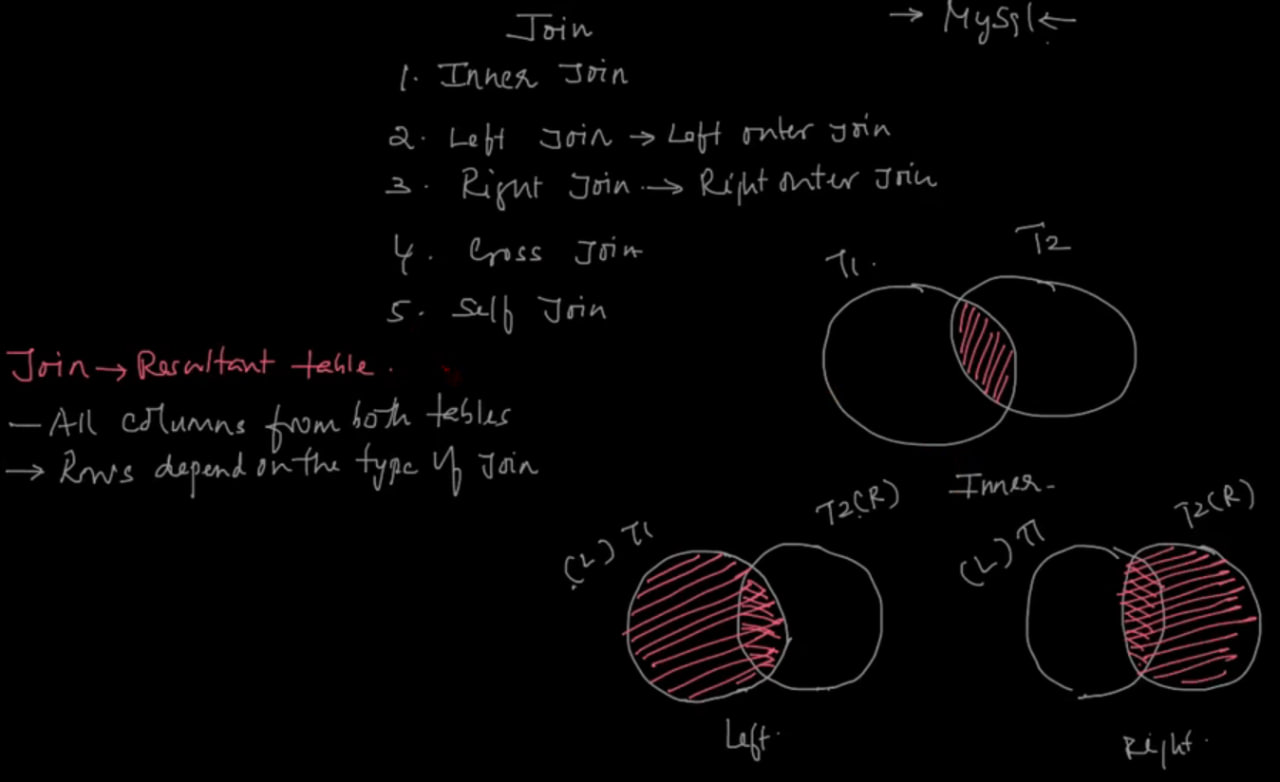 Join
→ MySql ←
1. Inner Join
2. Left Join → Left outer join
3. Right Join → Right outer Join
4. Cross Join
5. Self Join
Join → Resultant table.
— All columns from both tables
→ Rows depend on the type of Join
T1.
T2
Inner
(L) T1
T2(R)
Left.
(L) T1
T2(R)
Right.